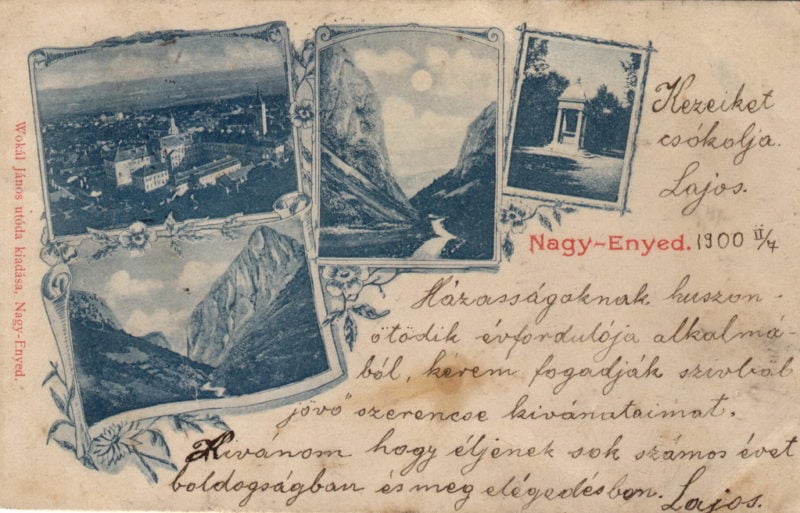 Wokál János utóda kiadása, Nagy-Enyed.
Kezeiket
csókolja.
Lajos.
Nagy-Enyed. 1900 II/7
Házasságoknak huszon-
ötödik évfordulója alkalmá-
ból, kérem fogadják szivból
jövő szerencse kivánataimat.
Kivánom hogy éljenek sok számos évet
boldogságban és meg elégedésben. Lajos.